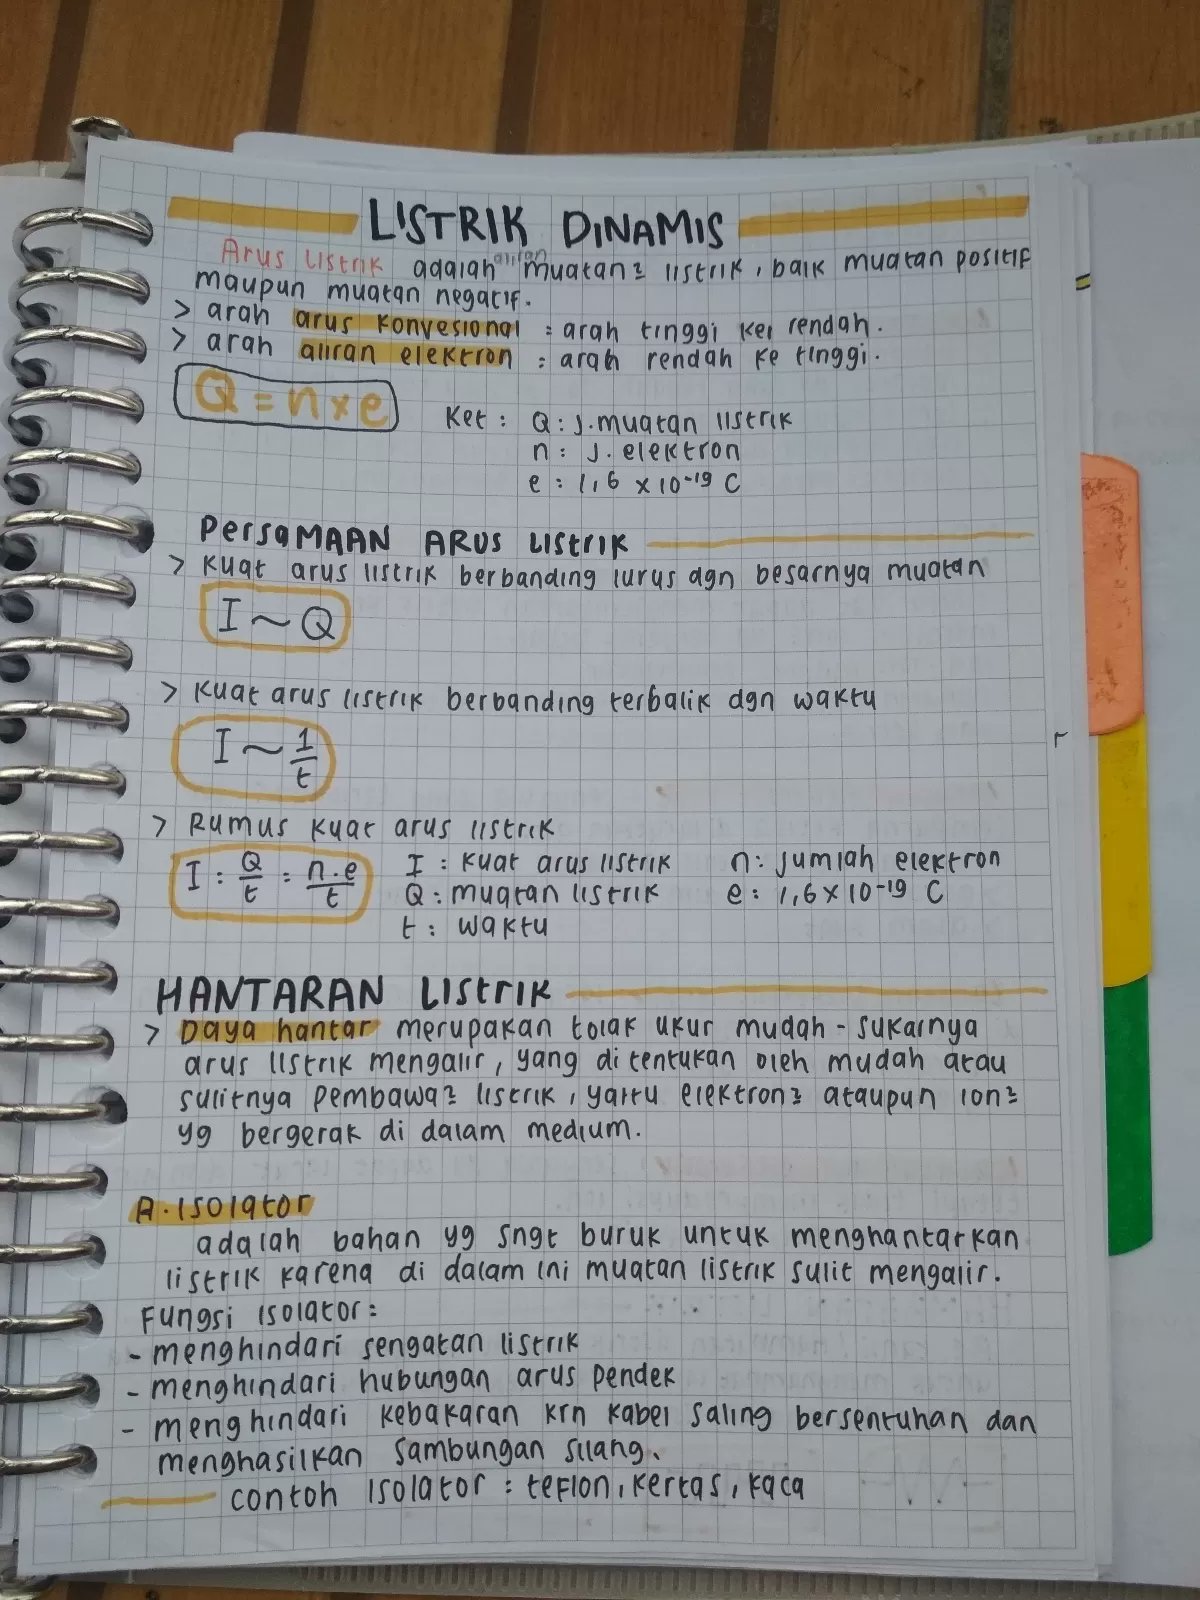 LISTRIK DINAMIS
Arus listrik adalah aliran muatan2 listrik, baik muatan positif
maupun muatan negatif.
> arah arus konvesional : arah tinggi kei rendah.
> arah aliran elektron : arah rendah ke tinggi.
Q = n x e
Ket : Q : j. muatan listrik
n : j. elektron
e : 1,6 x 10⁻¹⁹ C
PersaMAAN ARUS Listrik
> Kuat arus listrik berbanding lurus dgn besarnya muatan
I ~ Q
> Kuat arus listrik berbanding terbalik dgn waktu
I ~ 1/t
> Rumus kuat arus listrik
I : Q/t : n.e/t
I : kuat arus listrik n : jumlah elektron
Q : muatan listrik e : 1,6 x 10⁻¹⁹ C
t : waktu
HANTARAN Listrik
> Daya hantar merupakan tolak ukur mudah - sukarnya
arus listrik mengalir, yang di tentukan oleh mudah atau
sulitnya pembawa2 listrik, yaitu elektron2 ataupun ion2
yg bergerak di dalam medium.
A. Isolator
adalah bahan yg sngt buruk untuk menghantarkan
listrik karena di dalam ini muatan listrik sulit mengalir.
Fungsi isolator :
- menghindari sengatan listrik
- menghindari hubungan arus pendek
- menghindari kebakaran krn kabel saling bersentuhan dan
menghasilkan sambungan silang.
contoh isolator : teflon, kertas, kaca